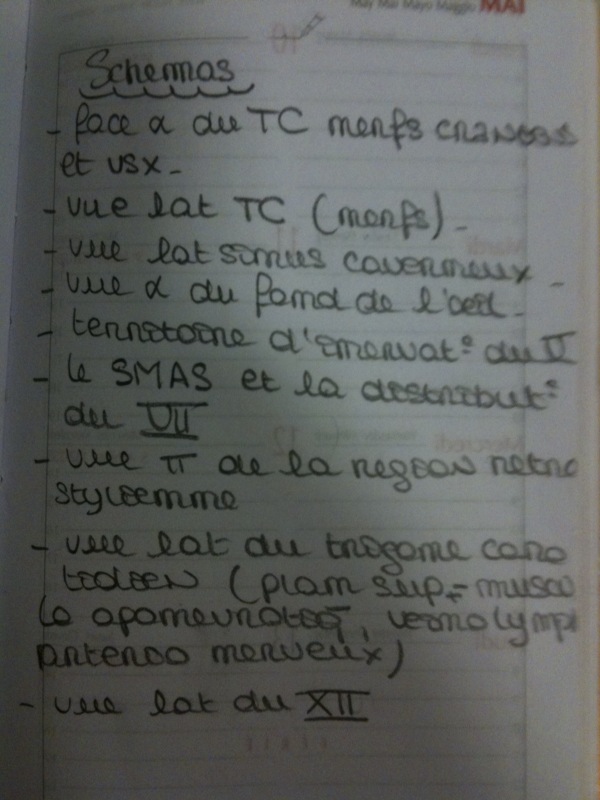 May Mai Mayo Maggio MAI
Schemas
- face α du TC menfs craniens
et vsx -
- vue lat TC (menfs) -
- vue lat sinus caverneux -
- vue α du fond de l'oeil -
- territoire d'innervat° du V
- le SMAS et la distribut°
du VII
- vue π de la region retro
stylienne
- vue lat du trigone caro
tidien (plan sup, - muscu
lo aponeurotiq, veino lymph
arterio nerveux)
- vue lat du XII